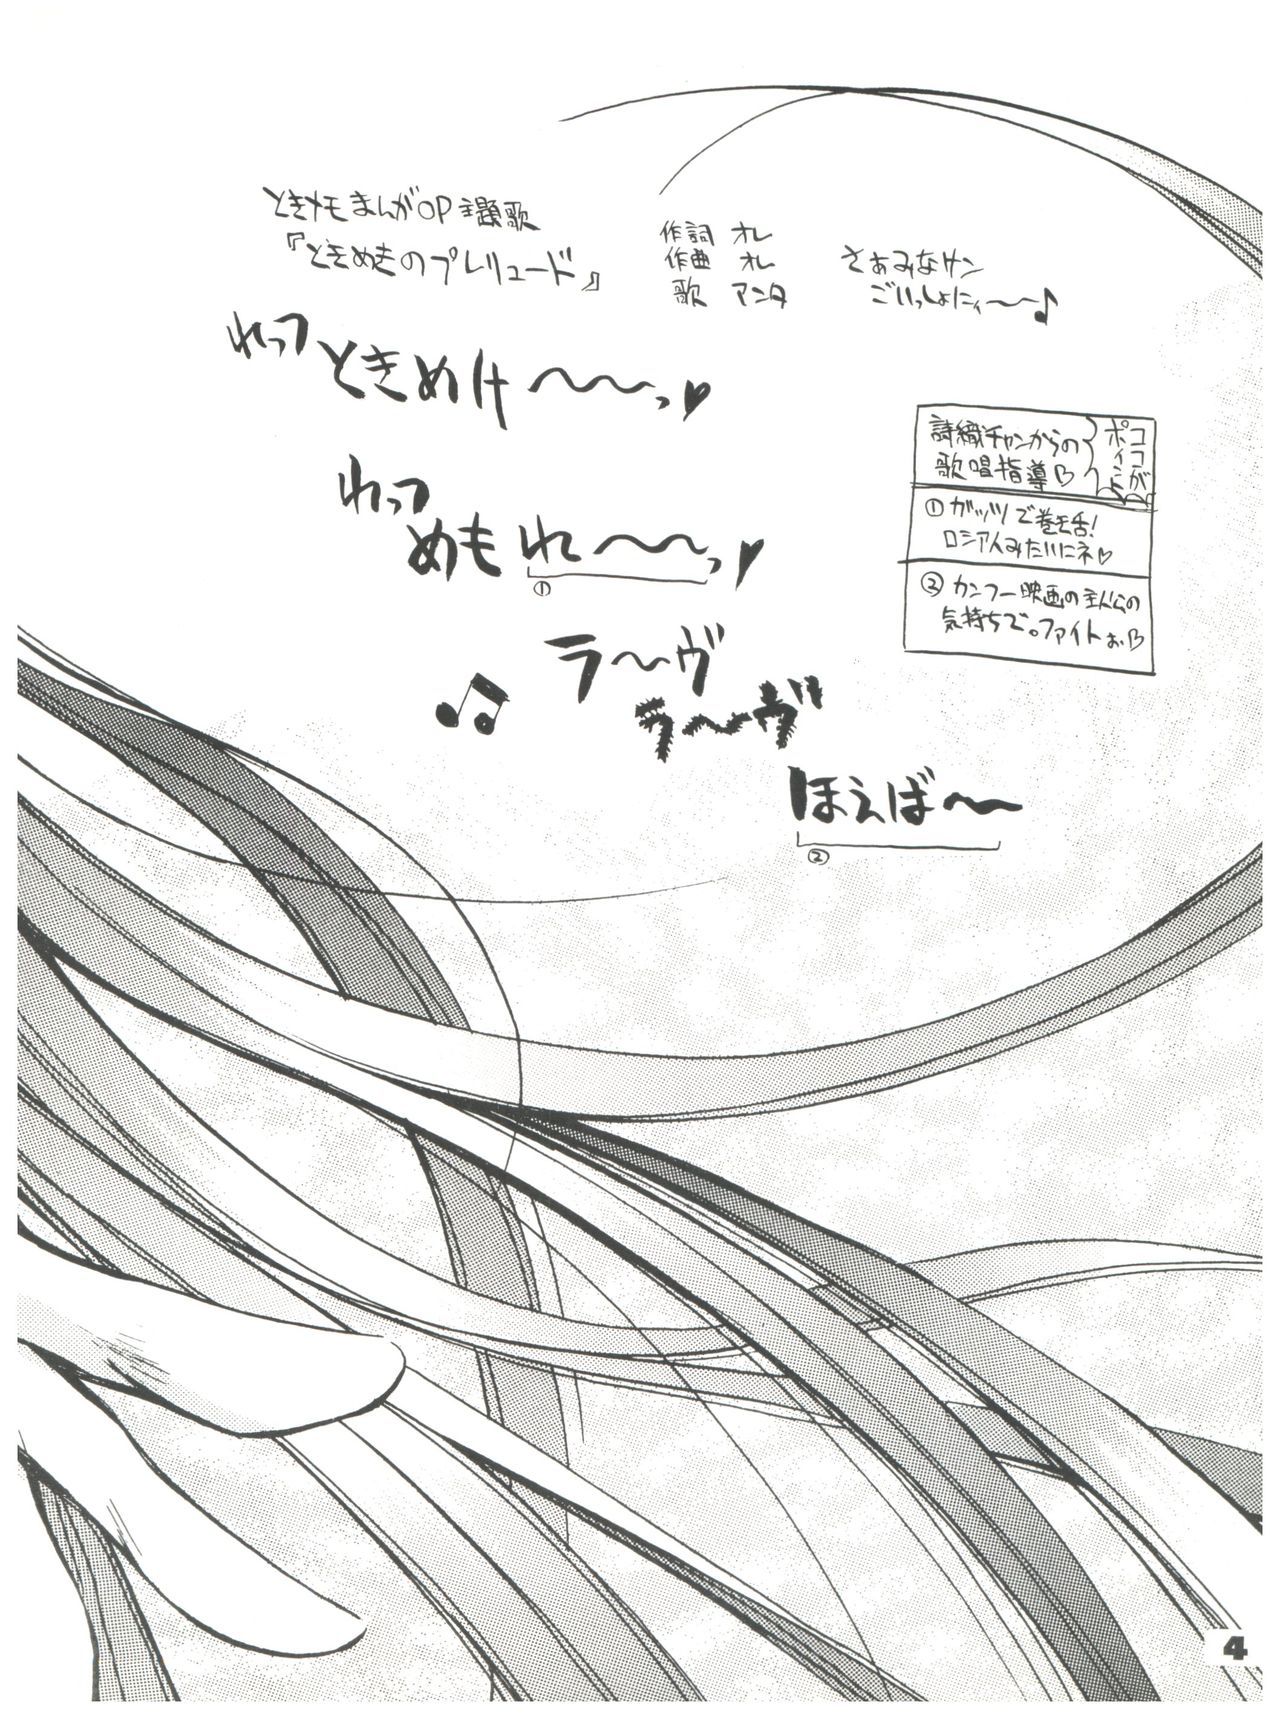 ときメモまんがOP主題歌
『ときめきのプレリュード』
作詞 オレ
作曲 オレ
歌 アンタ
さぁみなサン
ごいっしょにィ〜〜♪
れっつ
ときめけ〜〜〜っ♥
れっつ
めもれ〜〜〜っ♥
①
ラ〜〜ヴ
ラ〜〜ヴ
ほえば〜〜
②
ココが
ポイント
詩織チャンからの
歌唱指導♡
①ガッツで巻き舌!
ロシア人みたいにネ♡
②カンフー映画の主人公の
気持ちで。ファイトぉ♡
4